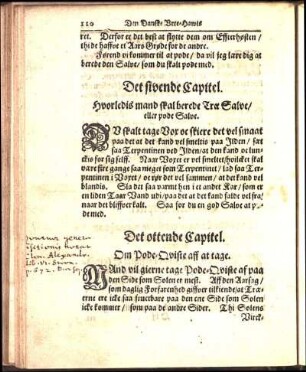 110 Den Danske Vrte-Hawis
ret. Derfor er det best at flytte dem om Effterhøsten/
thi de haffve et Aars Grøde for de andre.
Førend vi kommer til at pode/ da vil jeg lære dig at
berede den Salve/ som du skalt pode med.
Det sivende Capitel.
Hvorledis mand skal berede Træ Salve/
eller pode Salve.
DV skalt tage Vox oc skiere det vel smaat
paa det at det kand vel smeltis paa Ilden/ sæt
saa Terpeminen ved Ilden/ at den kand oc lun-
ckis for sig self. Naar Voxet er vel smeltet/ hvilcket skal
være fire gange saa meget som Terpeminet/ lad saa Ter-
peminen i Voxet/ oc rør det vel sammen/ at det kand vel
blandis. Sla det saa varmt hen i et andet Kar/ som er
en liden Taar Vand udi/ paa det at det kand falde vel fra/
naar det bliffver kalt. Saa før du en god Salve at po-
de med.
Det ottende Capitel.
Om Pode-Qviste aff at tage.
MAnd vil gierne tage Pode-Qviste af paa
den Side som Solen er mest. Aff den Aarsag/
som daglig Forfarenhed giffver tilkiende/ at Træ-
erne ere icke saa fructbare paa den ene Side som Solen
icke kommer/ som paa de andre Sider. Thi Solens
Virck-